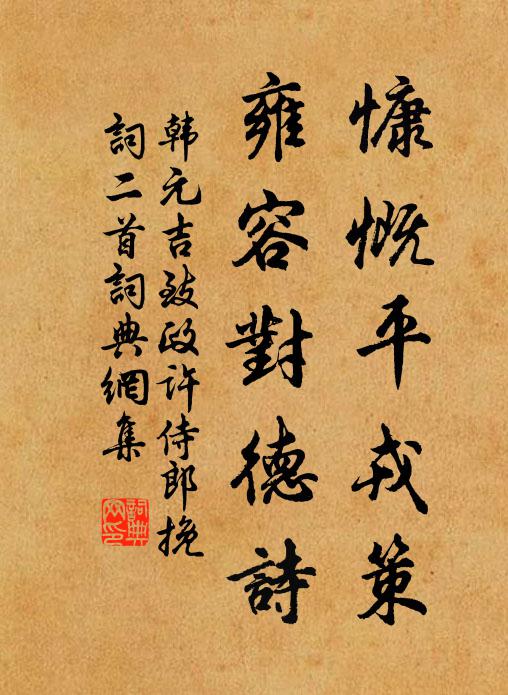 慷慨平戎策
雍容對德詩
韩元吉致政许侍郎挽
詞二首詞典網集
詞典
网印